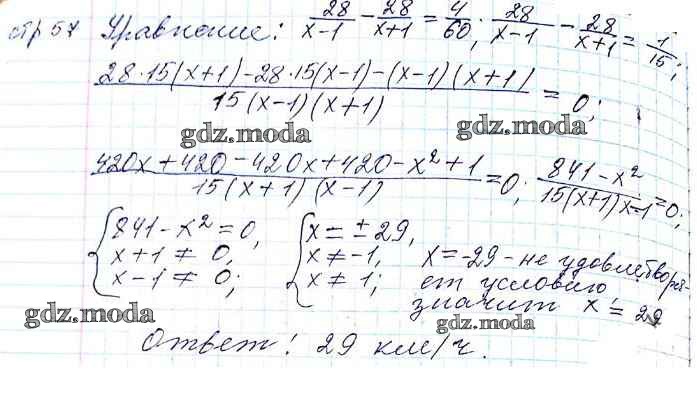 стр 57 Уравнение: 28/(x-1) - 28/(x+1) = 4/60; 28/(x-1) - 28/(x+1) = 1/15;
(28·15(x+1)-28·15(x-1)-(x-1)(x+1))/(15(x-1)(x+1)) = 0;
gdz.moda gdz.moda
(420x+420-420x+420-x²+1)/(15(x+1)(x-1)) = 0; (841-x²)/(15(x+1)x-1) = 0;
{841-x²=0, {x=±29,
x+1≠0, x≠-1, x=-29 - не удовлетворя-
x-1≠0; x≠1; ет условию
значит x=29
gdz.moda gdz.moda
Ответ: 29 км/ч.